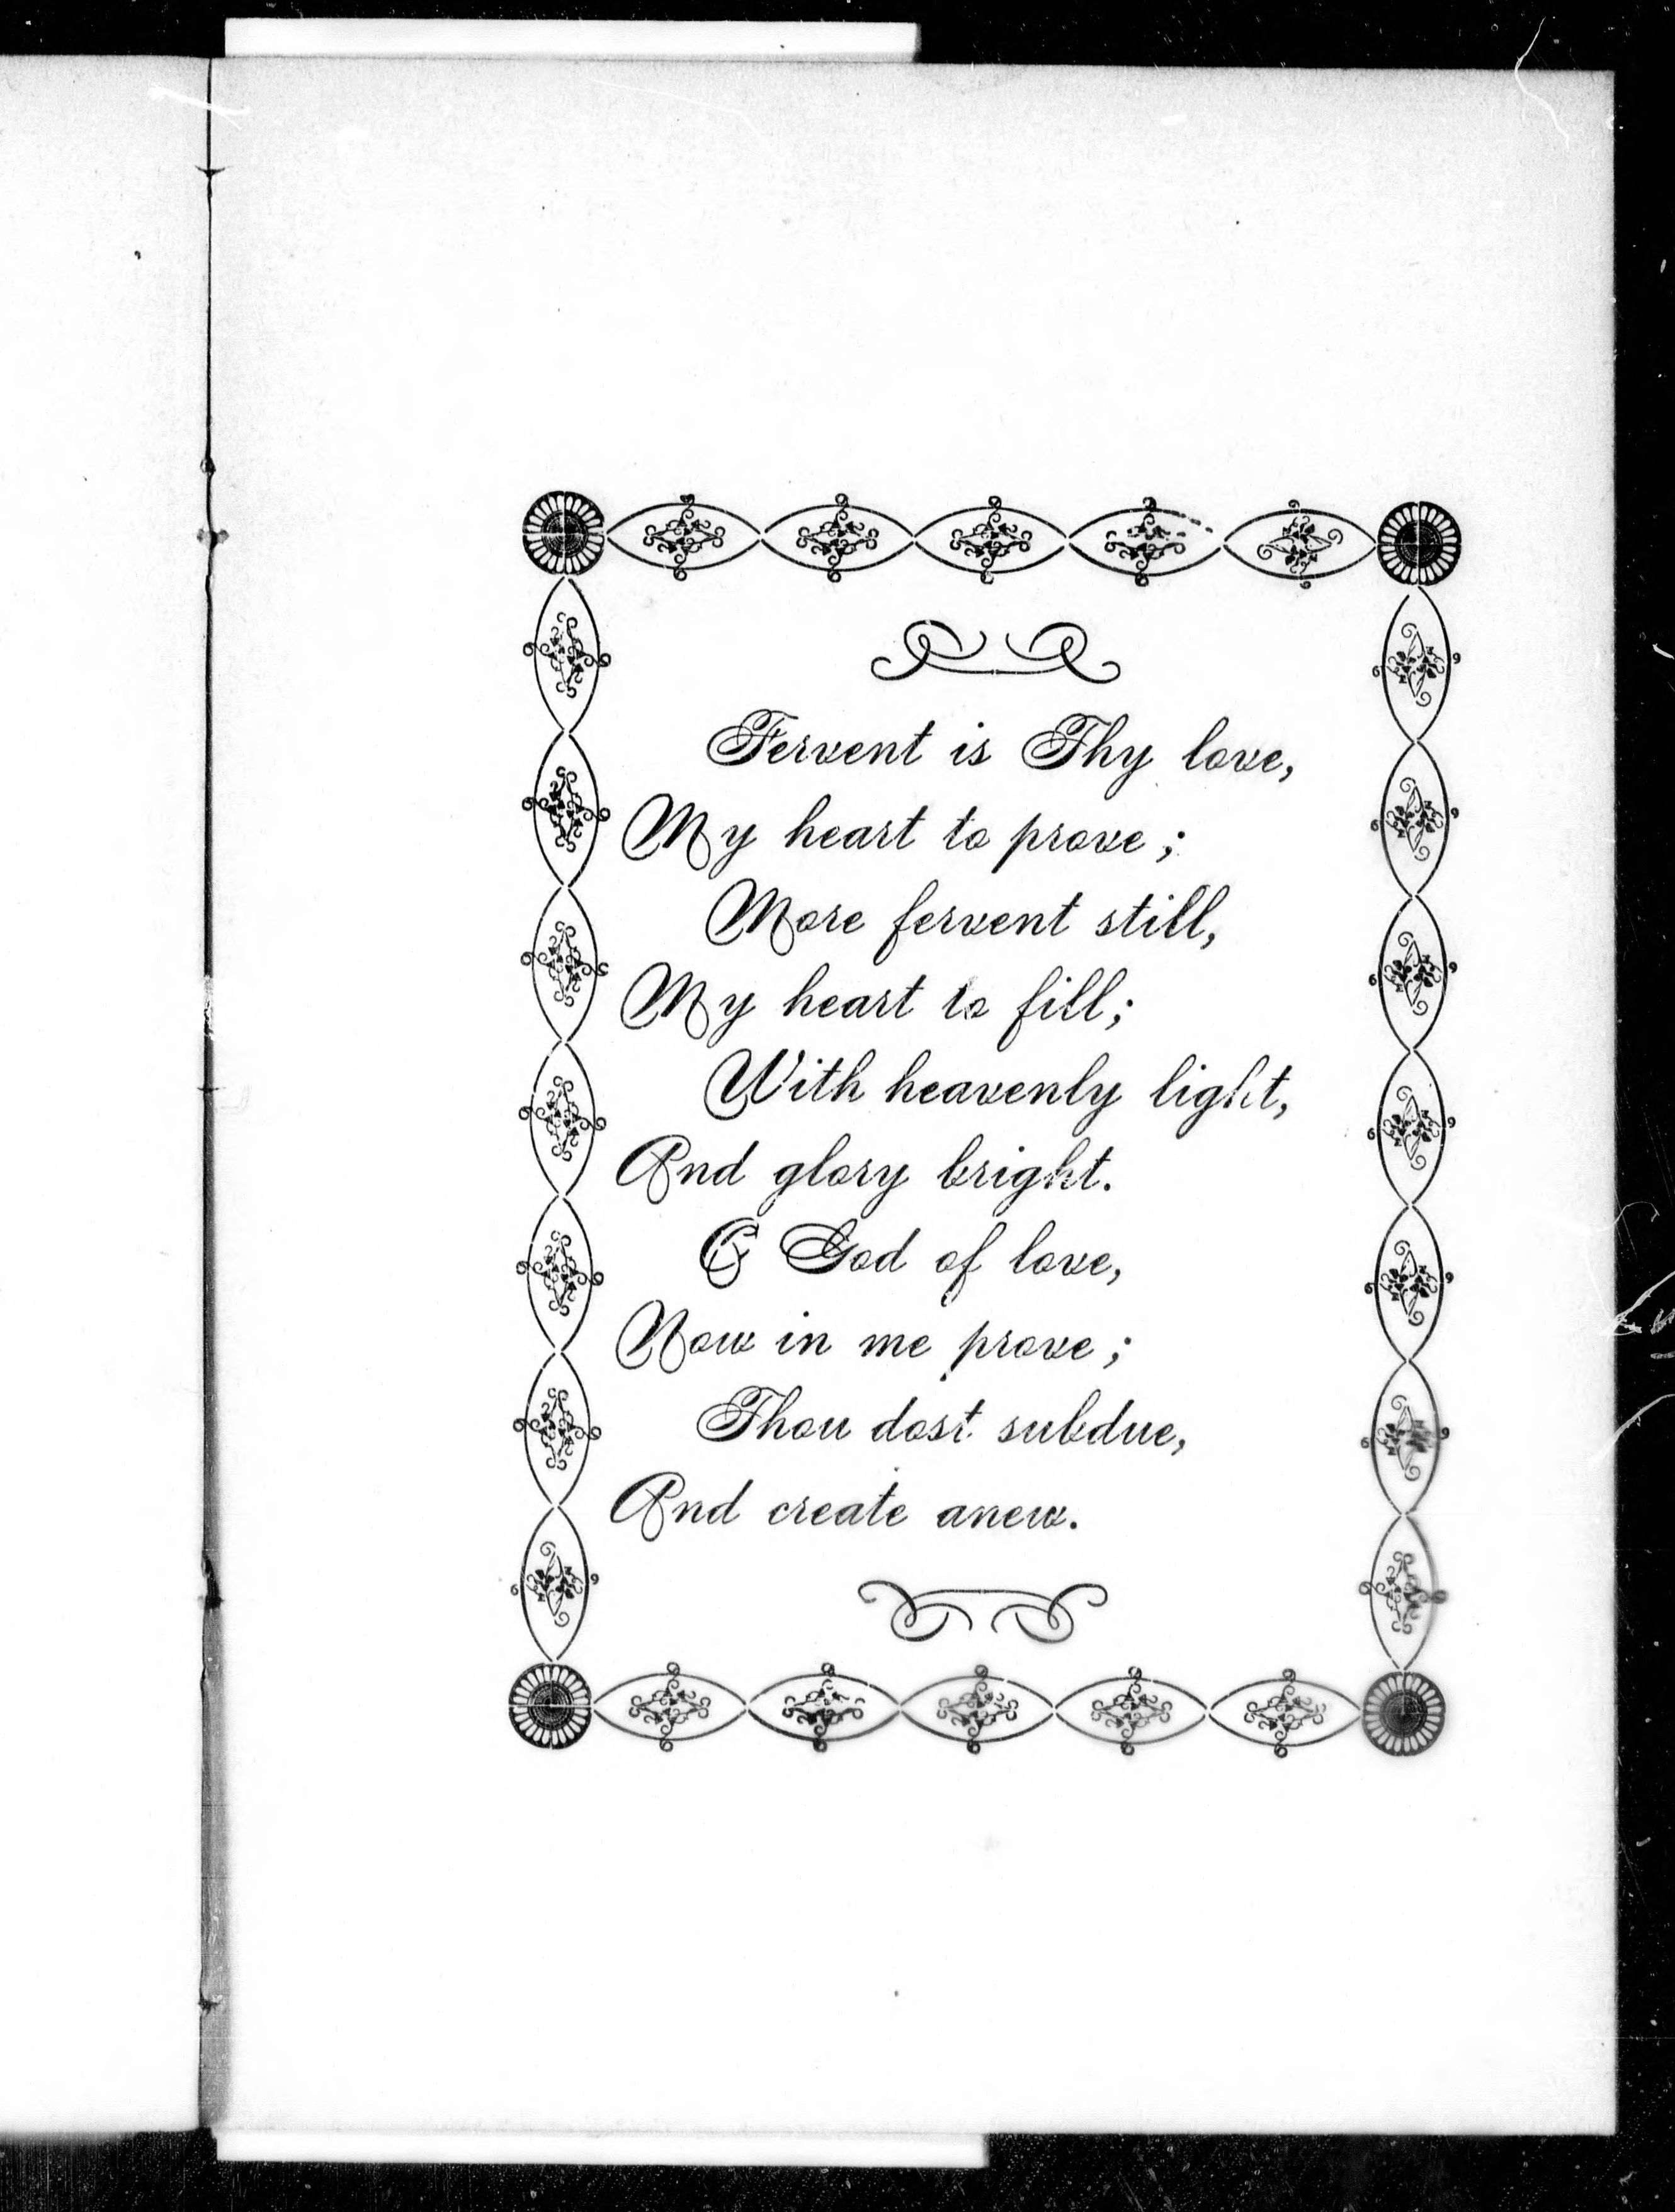 Fervent is Thy love,
My heart to prove;
More fervent still,
My heart to fill;
With heavenly light,
And glory bright.
O God of love,
Now in me prove;
Thou dost subdue,
And create anew.